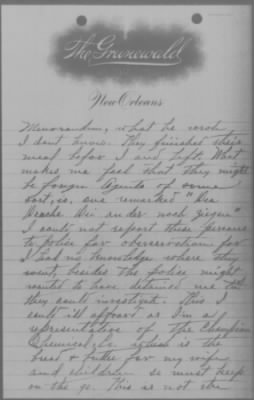 The Grunewald
New Orleans
Memorandum, what he wrote
I dont know. They finished their
meal befor I and left. What
makes me feel that they might
be foreign Agents of some
sort, is, one remarked "Die
Deutsche
I could not report these persons
to police for observation for
I had no knowledge where they
went, besides the police might
wanted to have detained me till
they could investigate. This I
could ill afford as I'm a
representative of the Champion
Chemical Co. which is the
bread & butter for my wife
and children so must keep
on the go. This is not the